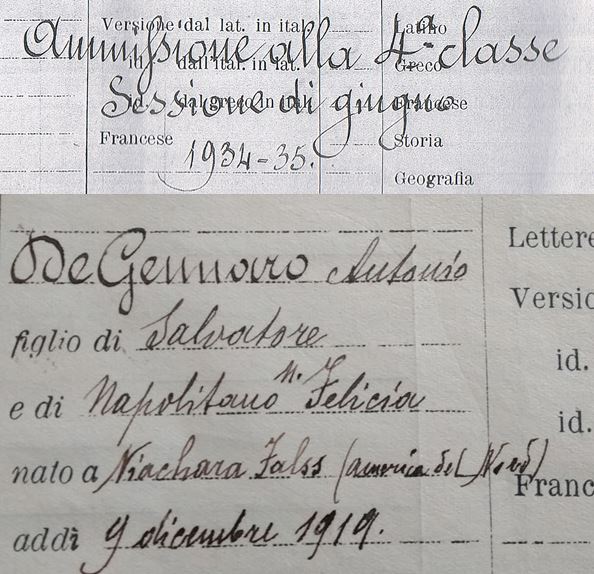 Versione dal lat. in ital. Latino
Ammissione alla 4ª classe
id. dall'ital. in lat. Greco
id. dal greco in ital. Francese
Sessione di giugno
Francese Storia
1934-35.
Geografia
De Gennaro Antonio Lettere
figlio di Salvatore Versio
e di Napolitano M. Felicia id.
id.
nato a Niachara Falss (America del Nord) Franc
addì 9 dicembre 1919.